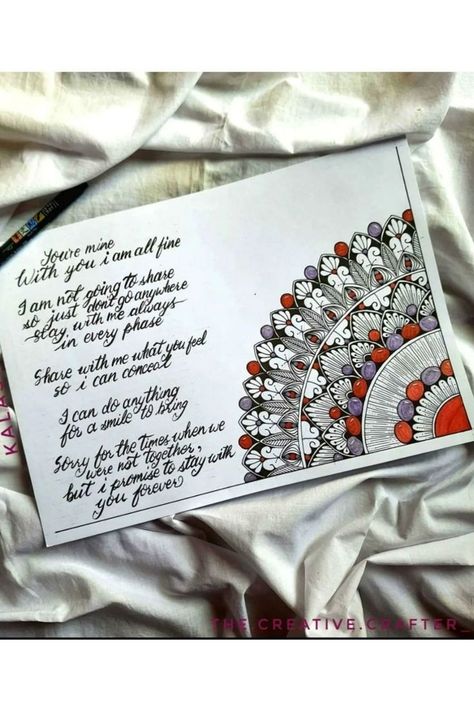 You're mine
With you i am all fine
I am not going to share
so just don't go anywhere
Stay with me always
in every phase
Share with me what you feel
so i can conceal
I can do anything
for a smile to bring
Sorry for the times when we
were not together,
but i promise to stay with
you forever
KALA
THE CREATIVE.CRAFTER_